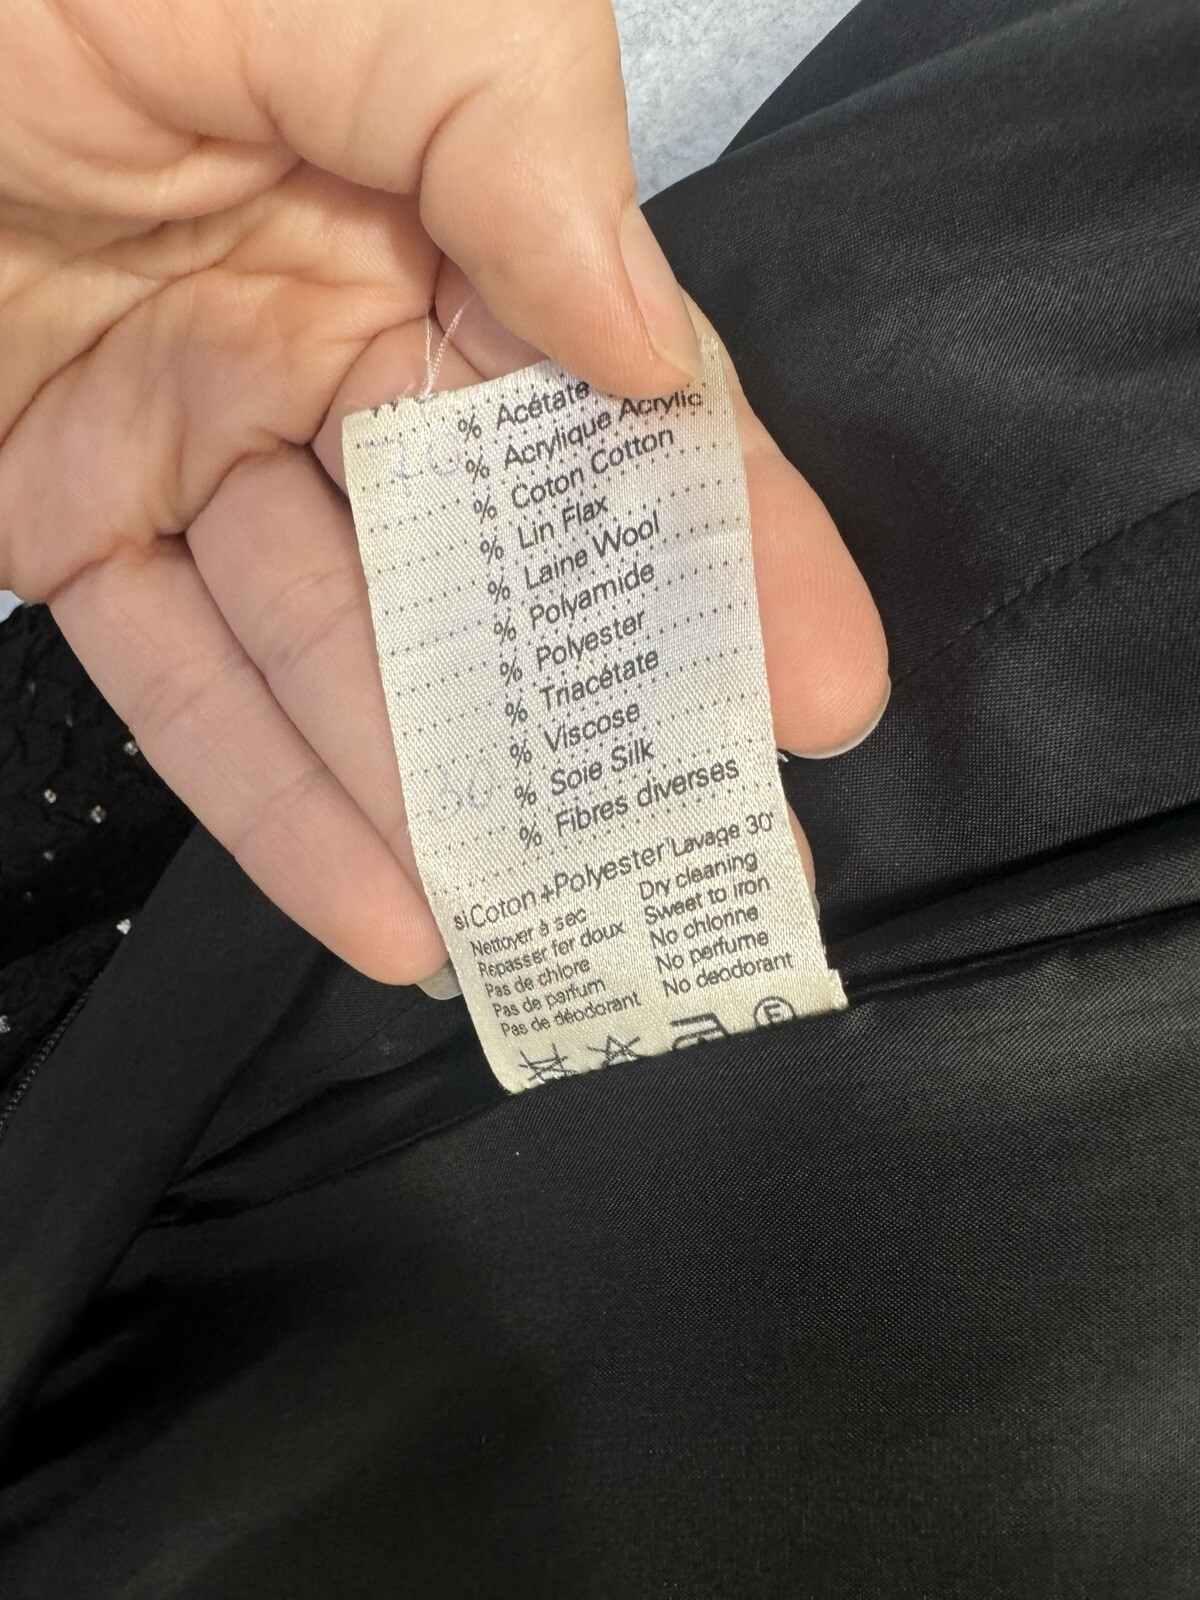 % Acétate
% Acrylique Acrylic
% Coton Cotton
% Lin Flax
% Laine Wool
% Polyamide
% Polyester
% Triacétate
% Viscose
% Soie Silk
% Fibres diverses
si Coton + Polyester Lavage 30°
Nettoyer à sec
Repasser fer doux
Pas de chlore
Pas de parfum
Pas de déodorant
Dry cleaning
Sweet to iron
No chlorine
No perfume
No deodorant
F